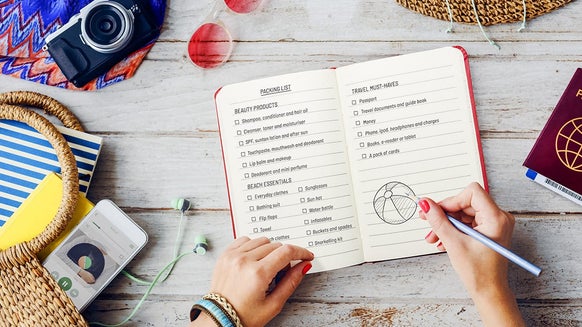 PACKING LIST
BEAUTY PRODUCTS
Shampoo, conditioner and hair oil
Cleanser, toner and moisturiser
SPF, suntan lotion and after sun
Toothpaste, mouthwash and deodorant
Lip balm and makeup
Deodorant and mini perfume
BEACH ESSENTIALS
Everyday clothes
Bathing suit
Flip flops
Towel
Umbrella
Beach bag
Sunglasses
Sun hat
Water bottle
Inflatables
Buckets and spades
Snorkelling kit
TRAVEL MUST-HAVES
Passport
Travel documents and guide book
Money
Phone, ipod, headphones and charges
Books, e-reader or tablet
A pack of cards